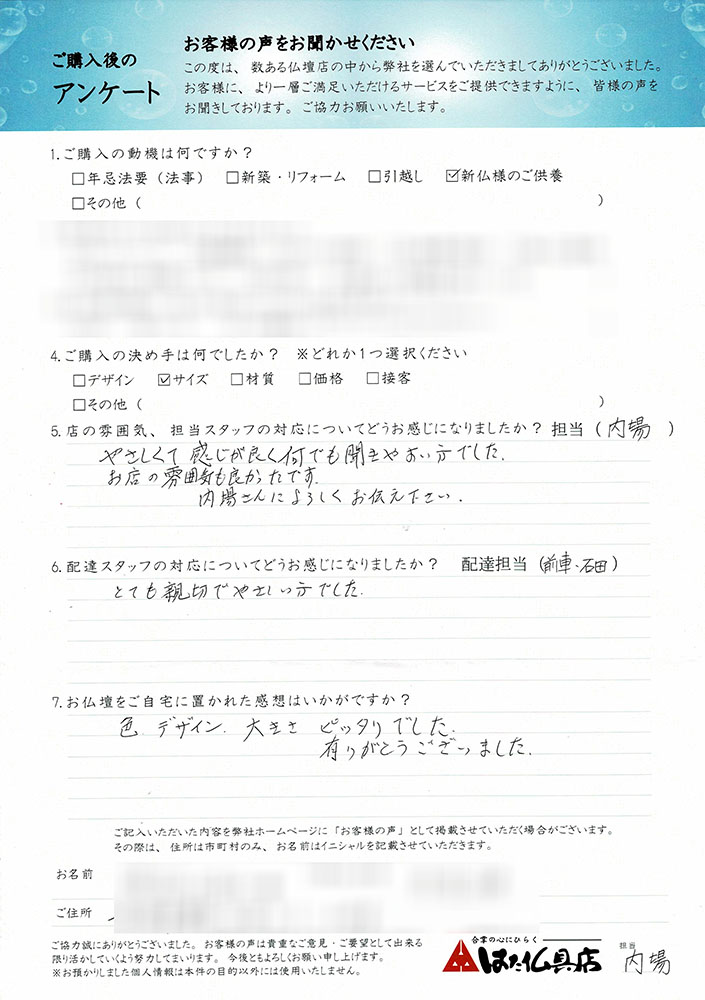 ご購入後の
アンケート
お客様の声をお聞かせください
この度は、数ある仏壇店の中から弊社を選んでいただきましてありがとうございました。
お客様に、より一層ご満足いただけるサービスをご提供できますように、皆様の声を
お聞きしております。ご協力お願いいたします。
1.ご購入の動機は何ですか？
□年忌法要（法事） □新築・リフォーム □引越し ☑新仏様のご供養
□その他（ ）
4.ご購入の決め手は何でしたか？ ※どれか1つ選択ください
□デザイン ☑サイズ □材質 □価格 □接客
□その他（ ）
5.店の雰囲気、担当スタッフの対応についてどうお感じになりましたか？ 担当（内場 ）
やさしくて感じが良く何でも聞きやすい方でした.
お店の雰囲気も良かったです.
内場さんによろしくお伝え下さい.
6.配達スタッフの対応についてどうお感じになりましたか？ 配達担当（前車・石田）
とても親切でやさしい方でした.
7.お仏壇をご自宅に置かれた感想はいかがですか？
色 デザイン. 大きさ ピッタリでした.
有りがとうございました.
ご記入いただいた内容を弊社ホームページに「お客様の声」として掲載させていただく場合がございます。
その際は、住所は市町村のみ、お名前はイニシャルを記載させていただきます。
お名前
ご住所
ご協力誠にありがとうございました。お客様の声は貴重なご意見・ご要望として出来る
限り活かしていくよう努力してまいります。今後ともよろしくお願い申し上げます。
※お預かりしました個人情報は本件の目的以外には使用いたしません。
合掌の心にひらく
はた仏具店
担当
内場